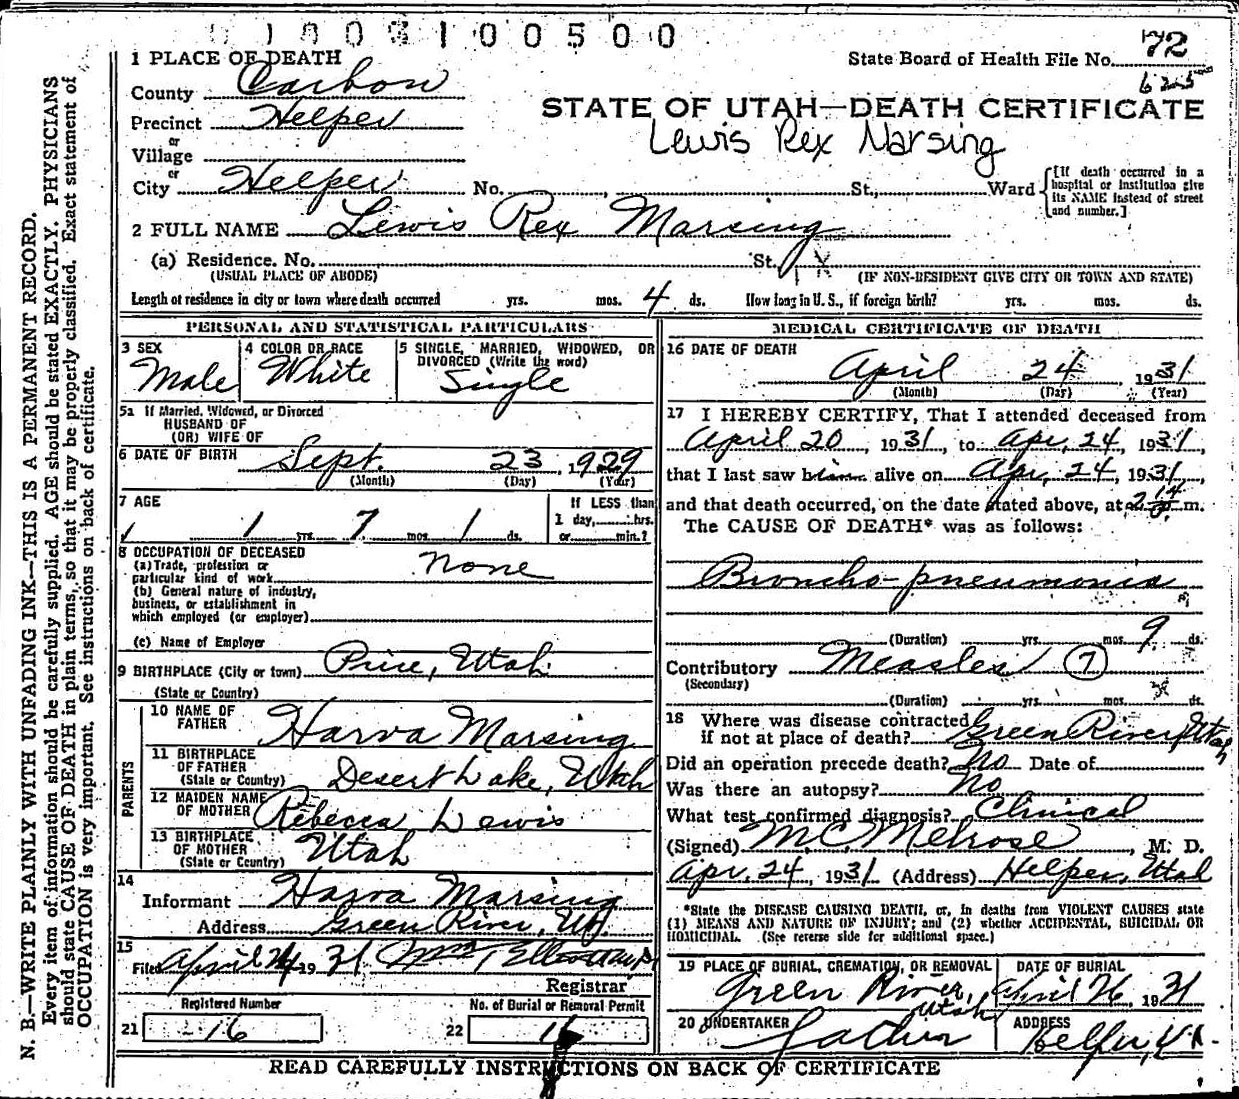 1003100500
1 PLACE OF DEATH
State Board of Health File No. 72
625
County Carbon
STATE OF UTAH—DEATH CERTIFICATE
Precinct Helper
Lewis Rex Narsing
or
Village
or
City Helper No. , St., Ward
[If death occurred in a hospital or institution give its NAME instead of street and number.]
2 FULL NAME Lewis Rex Marsing
(a) Residence. No. St.
(USUAL PLACE OF ABODE) (IF NON-RESIDENT GIVE CITY OR TOWN AND STATE)
Length of residence in city or town where death occurred yrs. mos. 4 ds. How long in U. S., if foreign birth? yrs. mos. ds.
PERSONAL AND STATISTICAL PARTICULARS
3 SEX Male
4 COLOR OR RACE White
5 SINGLE, MARRIED, WIDOWED, OR DIVORCED (Write the word) Single
5a If Married, Widowed, or Divorced
HUSBAND OF
(OR) WIFE OF
6 DATE OF BIRTH Sept. 23, 1929
(Month) (Day) (Year)
7 AGE
1 yrs. 7 mos. 1 ds.
If LESS than
1 day, hrs.
or min.?
8 OCCUPATION OF DECEASED
(a) Trade, profession or
particular kind of work none
(b) General nature of industry,
business, or establishment in
which employed (or employer)
(c) Name of Employer
9 BIRTHPLACE (City or town) Price, Utah
(State or Country)
PARENTS
10 NAME OF FATHER Harva Marsing
11 BIRTHPLACE OF FATHER (State or Country) Desert Lake, Utah
12 MAIDEN NAME OF MOTHER Rebecca Lewis
13 BIRTHPLACE OF MOTHER (State or Country) Utah
14
Informant Harva Marsing
Address Green River, Ut.
15
Filed April 24 1931
Registrar
Registered Number
21 16
No. of Burial or Removal Permit
22 16
MEDICAL CERTIFICATE OF DEATH
16 DATE OF DEATH
April 24, 1931
(Month) (Day) (Year)
17 I HEREBY CERTIFY, That I attended deceased from
April 20, 1931, to Apr. 24, 1931,
that I last saw him alive on Apr. 24, 1931,
and that death occurred, on the date stated above, at m.
The CAUSE OF DEATH* was as follows:
Broncho-pneumonia
(Duration) yrs. mos. 9 ds.
Contributory Measles 7
(Secondary)
(Duration) yrs. mos. ds.
18 Where was disease contracted
if not at place of death? Green River, Utah
Did an operation precede death? No Date of
Was there an autopsy? No
What test confirmed diagnosis? Clinical
(Signed) M.C. Melrose, M. D.
Apr. 24, 1931 (Address) Helper, Utah
*State the DISEASE CAUSING DEATH, or, in deaths from VIOLENT CAUSES state
(1) MEANS AND NATURE OF INJURY; and (2) whether ACCIDENTAL, SUICIDAL OR
HOMICIDAL. (See reverse side for additional space.)
19 PLACE OF BURIAL, CREMATION, OR REMOVAL
Green River, Utah
DATE OF BURIAL
April 26, 1931
20 UNDERTAKER
Father
ADDRESS
Helper, Ut.
READ CAREFULLY INSTRUCTIONS ON BACK OF CERTIFICATE
N. B.—WRITE PLAINLY WITH UNFADING INK—THIS IS A PERMANENT RECORD.
Every item of information should be carefully supplied. AGE should be stated EXACTLY. PHYSICIANS
should state CAUSE OF DEATH in plain terms, so that it may be properly classified. Exact statement of
OCCUPATION is very important. See instructions on back of certificate.